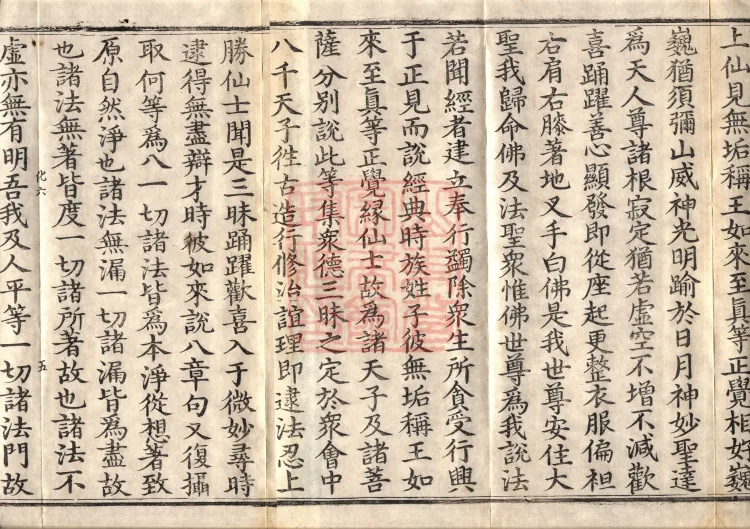 上仙見無垢稱王如來至真等正覺相好巍
巍猶須彌山威神光明踰於日月神妙聖達
為天人尊諸根寂定猶若虛空不增不減歡
喜踊躍善心顯發即從座起更整衣服偏袒
右肩右膝著地叉手白佛是我世尊安住大
聖我歸命佛及法聖衆惟佛世尊為我說法
若聞經者建立奉行蠲除衆生所貪受行興
于正見而說經典時族姓子彼無垢稱王如
來至真等正覺緣仙士故為諸天子及諸菩
薩分別說此等集衆德三昧之定於衆會中
八千天子徃古造行修治誼理即逮法忍上
勝仙士聞是三昧踊躍歡喜入于微妙尋時
逮得無盡辯才時彼如來說八章句又復攝
取何等為八一切諸法皆為本淨從想著致
原自然淨也諸法無漏一切諸漏皆為盡故
也諸法無著皆度一切諸所著故也諸法不
化六 五
虛亦無有明吾我及人平等一切諸法門故